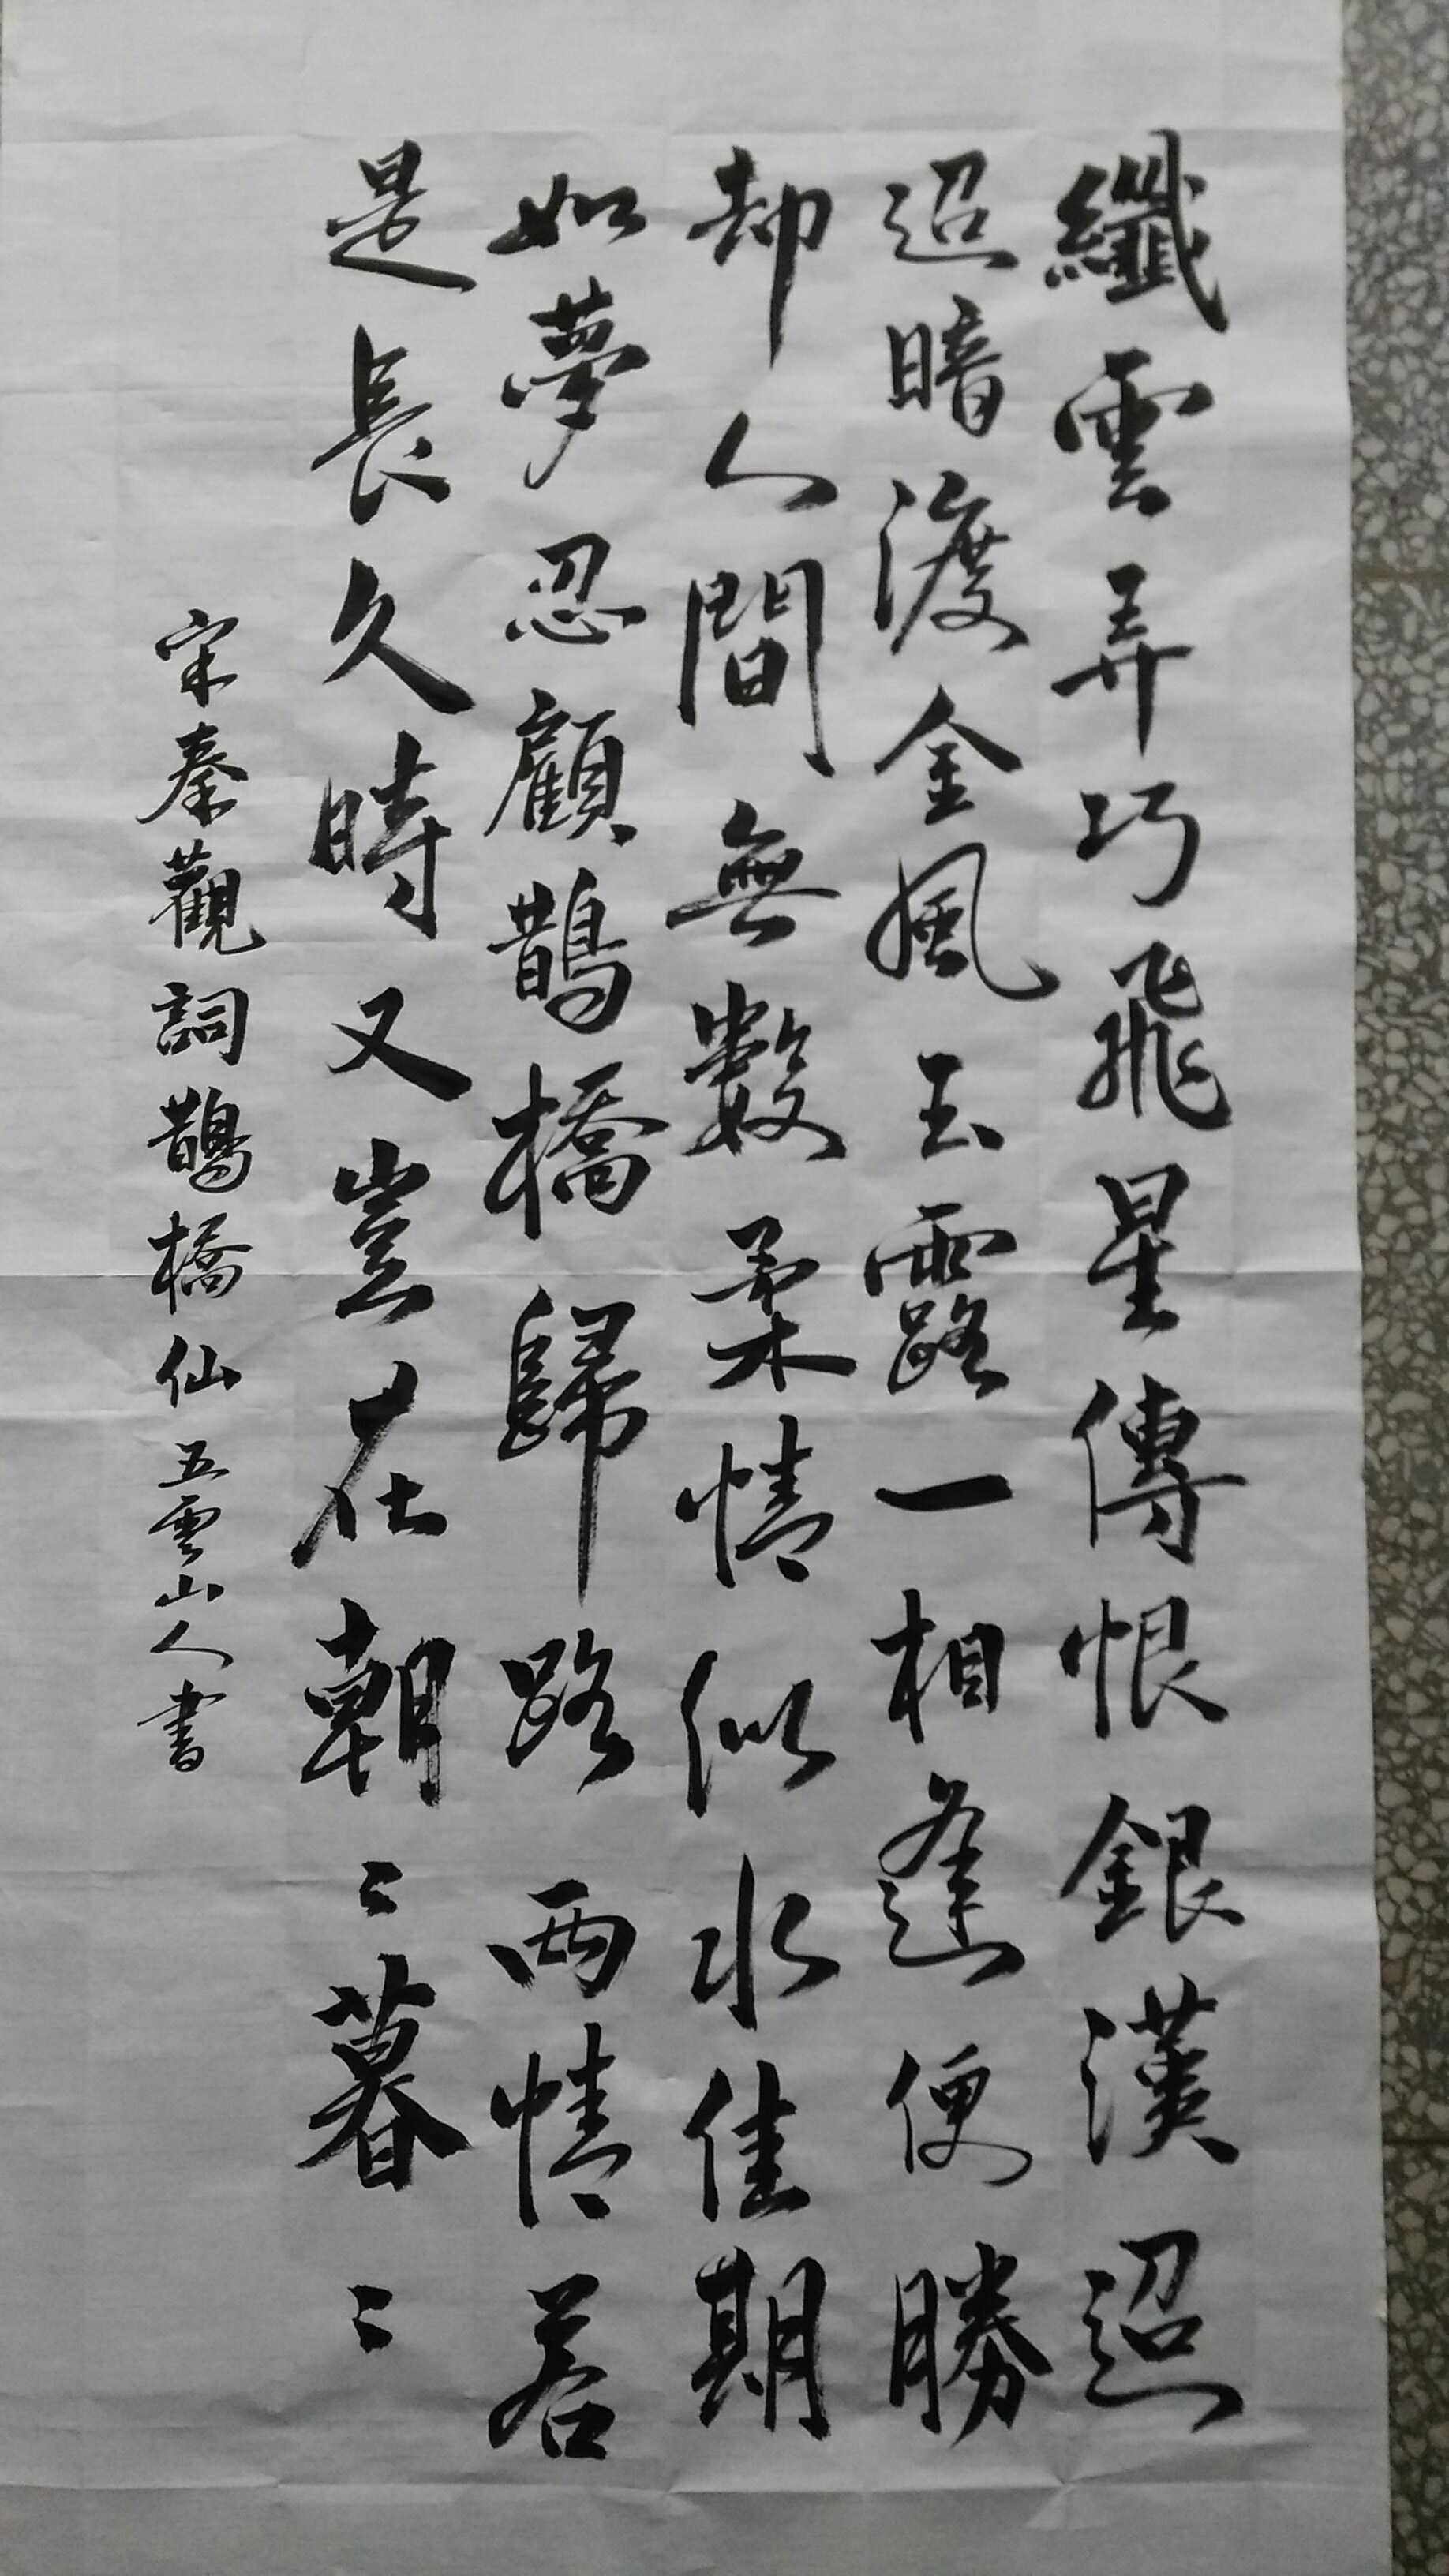 纖雲弄巧飛星傳恨銀漢迢
迢暗渡金風玉露一相逢便勝
却人間無數柔情似水佳期
如夢忍顧鵲橋歸路兩情若
是長久時又豈在朝〻暮〻
宋秦觀詞鵲橋仙五雲山人書